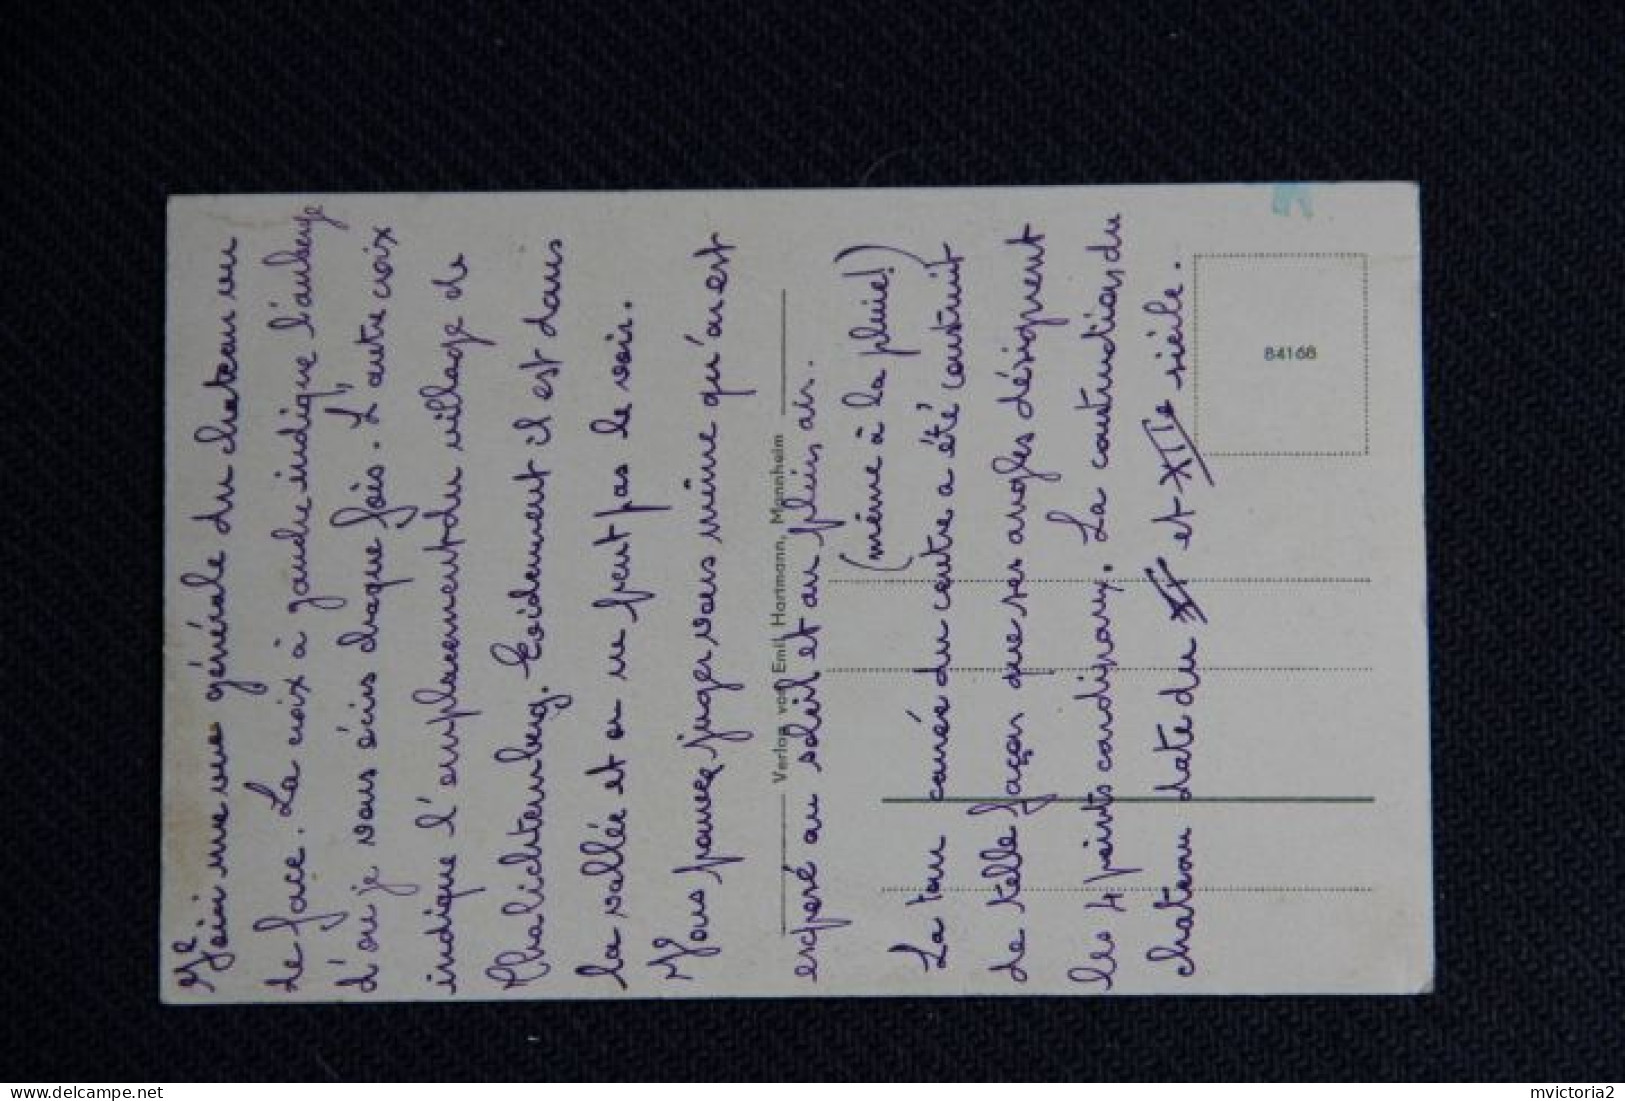 Voici une vue générale du chateau vu
de face. La croix à gauche indique l'auberge
d'ou je vous écris chaque fois. L'autre croix
indique l'emplacement du village de
Thalichtenberg. Evidemment il est dans
la vallée et on ne peut pas le voir.
Vous pouvez juger vous même qu'on est
Verlag von Emil Hartmann, Mannheim
exposé au soleil et au plein air.
(même à la pluie!)
La tour carrée du centre a été construit
de telle façon que ses angles désignent
les 4 points cardinaux. La construction du
chateau date du et XIIe siècle.
84168
mvictoria2